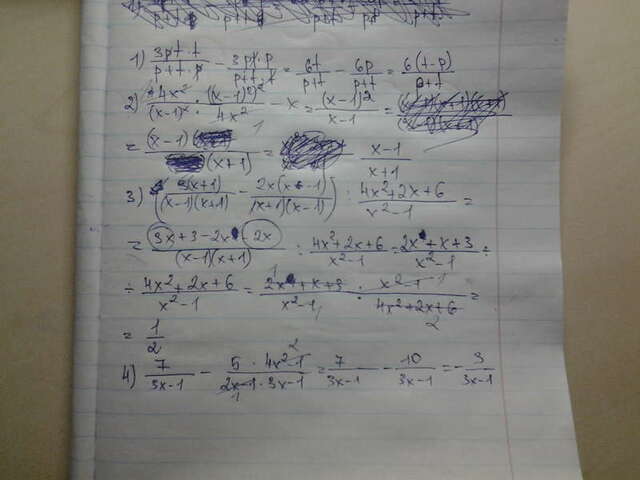 1) 3pt·t/p+t·p - 3pt·p/p+t·t = 6t/p+t - 6p/p+t = 6(t-p)/p+t
2) 4x²/(x-1)² · (x-1)²/4x² - x = (x-1)²/x-1 =
= (x-1)/(x+1) = x-1/x+1
3) (3(x+1)/(x-1)(x+1) - 2x(x-1)/(x+1)(x-1)) : 4x²+2x+6/x²-1 =
= 3x+3-2x-2x/(x-1)(x+1) : 4x²+2x+6/x²-1 = 2x²+x+3/x²-1 ÷
÷ 4x²+2x+6/x²-1 = 2x²+x+3/x²-1 · x²-1/4x²+2x+6 =
= 1/2
4) 7/3x-1 - 5·4x²-1/2x-1·3x-1 = 7/3x-1 - 10/3x-1 = -3/3x-1